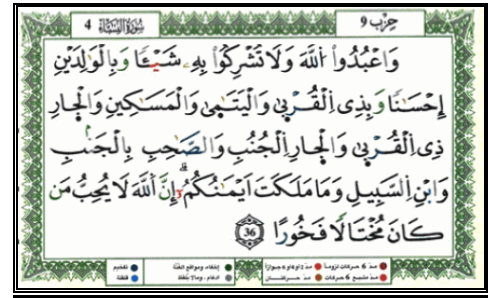 حِزْب 9
سُورَةُ النِّسَاءِ 4
وَاعْبُدُوا۟ اللَّهَ وَلَا تُشْرِكُوا۟ بِهِۦ شَيْـًٔا وَبِالْوَٰلِدَيْنِ
إِحْسَٰنًا وَبِذِى الْقُرْبَىٰ وَالْيَتَٰمَىٰ وَالْمَسَٰكِينِ وَالْجَارِ
ذِى الْقُرْبَىٰ وَالْجَارِ الْجُنُبِ وَالصَّاحِبِ بِالْجَنۢبِ
وَابْنِ السَّبِيلِ وَمَا مَلَكَتْ أَيْمَٰنُكُمْ إِنَّ اللَّهَ لَا يُحِبُّ مَن
كَانَ مُخْتَالًا فَخُورًا 36
مدّ 6 حركات لزوماً مدّ 2 او 4 او 6 جوازاً إخفاء، ومواقع الغنّة تفخيم
مدّ مشبع 6 حركات مدّ حركتـــان ادغام، ومالا يلفظ قلقلة